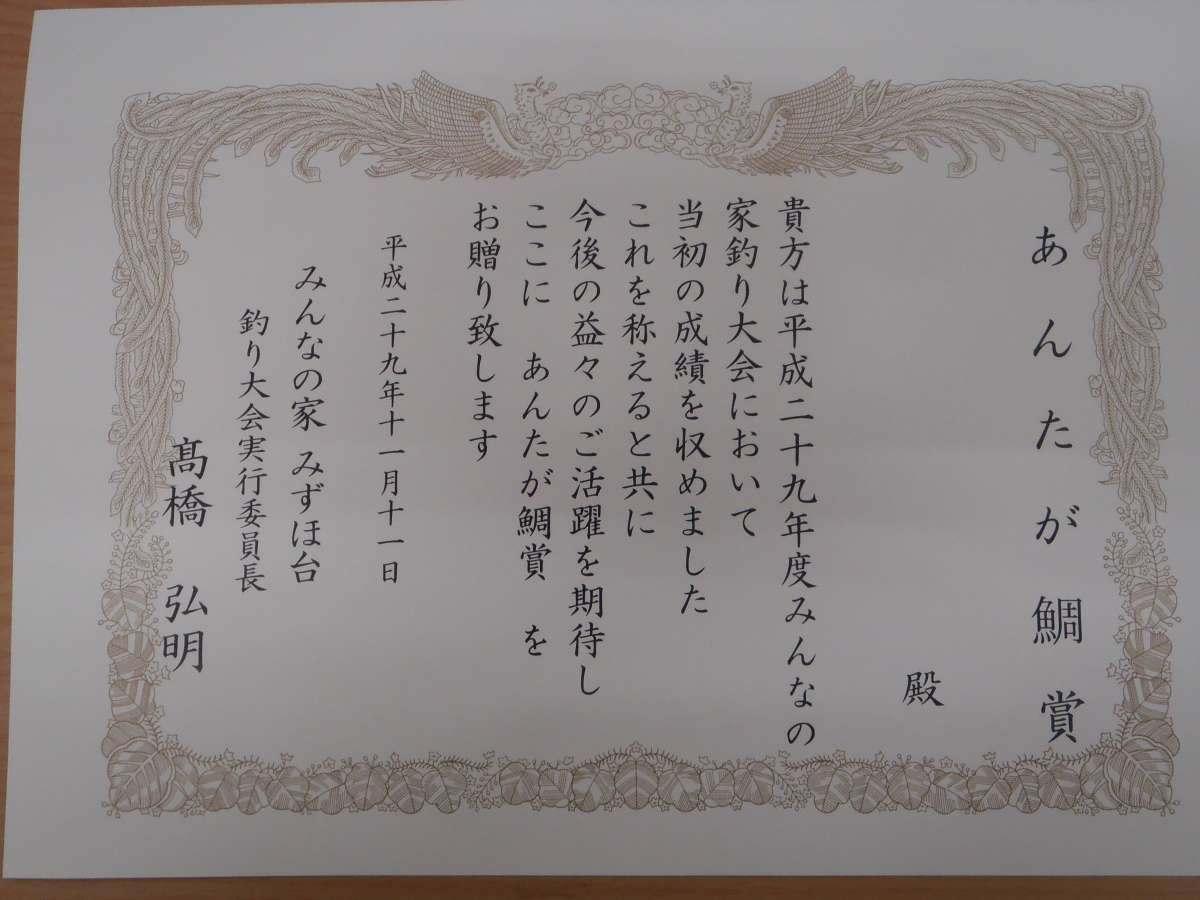 あんたが鯛賞
殿
貴方は平成二十九年度みんなの
家釣り大会において
当初の成績を収めました
これを称えると共に
今後の益々のご活躍を期待し
ここに あんたが鯛賞 を
お贈り致します
平成二十九年十一月十一日
みんなの家 みずほ台
釣り大会実行委員長
髙橋 弘明